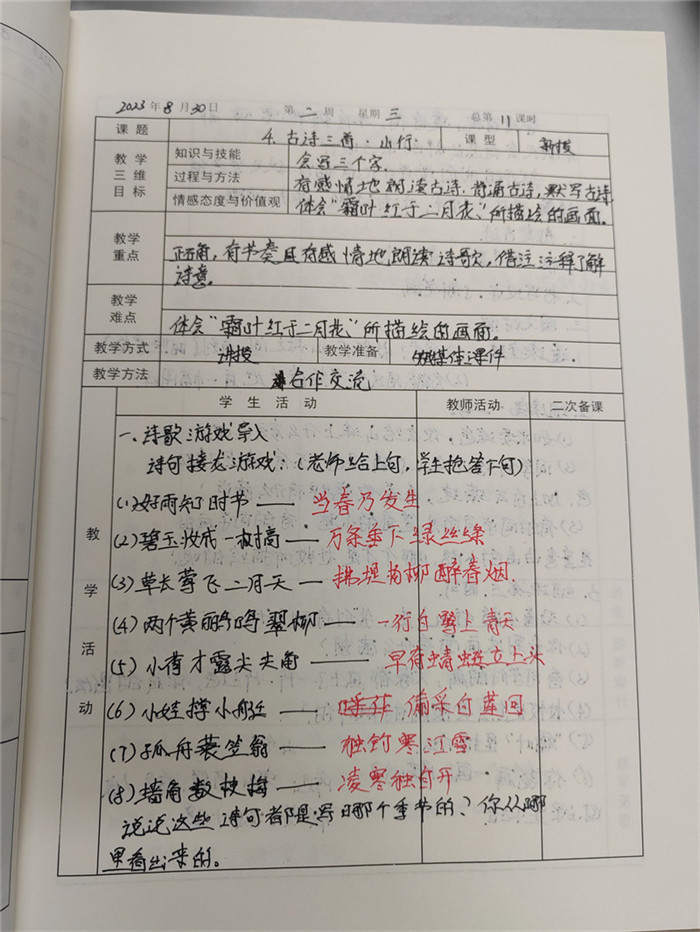 2023年8月30日 第二周 星期三 总第11课时
课题 4.古诗三首·山行 课型 新授
教学三维目标 知识与技能 会写三个字.
过程与方法 有感情地朗读古诗.背诵古诗,默写古诗
情感态度与价值观 体会“霜叶红于二月花”所描绘的画面。
教学重点 正确,有节奏且有感情地朗读诗歌,借注注释了解
诗意。
教学难点 体会“霜叶红于二月花”所描绘的画面。
教学方式 讲授 教学准备 多媒体课件
教学方法 合作交流
教学活动 学生活动 教师活动 二次备课
一、诗歌游戏导入
诗句接龙游戏:(老师给上句,学生抢答下句)
(1)好雨知时节——当春乃发生
(2)碧玉妆成一树高——万条垂下绿丝绦
(3)草长莺飞二月天——拂堤杨柳醉春烟.
(4)两个黄鹂鸣翠柳——一行白鹭上青天
(5)小荷才露尖尖角——早有蜻蜓立上头
(6)小娃撑小艇——偷采白莲回
(7)孤舟蓑笠翁——独钓寒江雪
(8)墙角数枝梅——凌寒独自开
说说这些诗句都是写哪个季节的?你从哪
里看出来的。